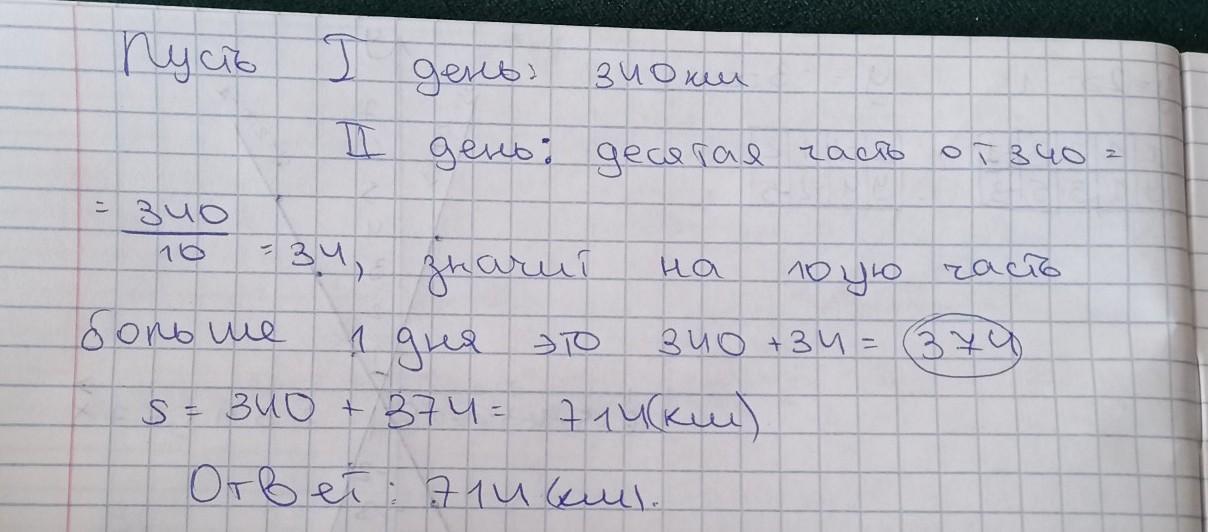 Пусть I день: 340км
II день: десятая часть от 340 =
= 340/10 = 34, значит на 10ую часть
больше 1 дня это 340 + 34 = 374
S = 340 + 374 = 714(км)
Ответ: 714(км).